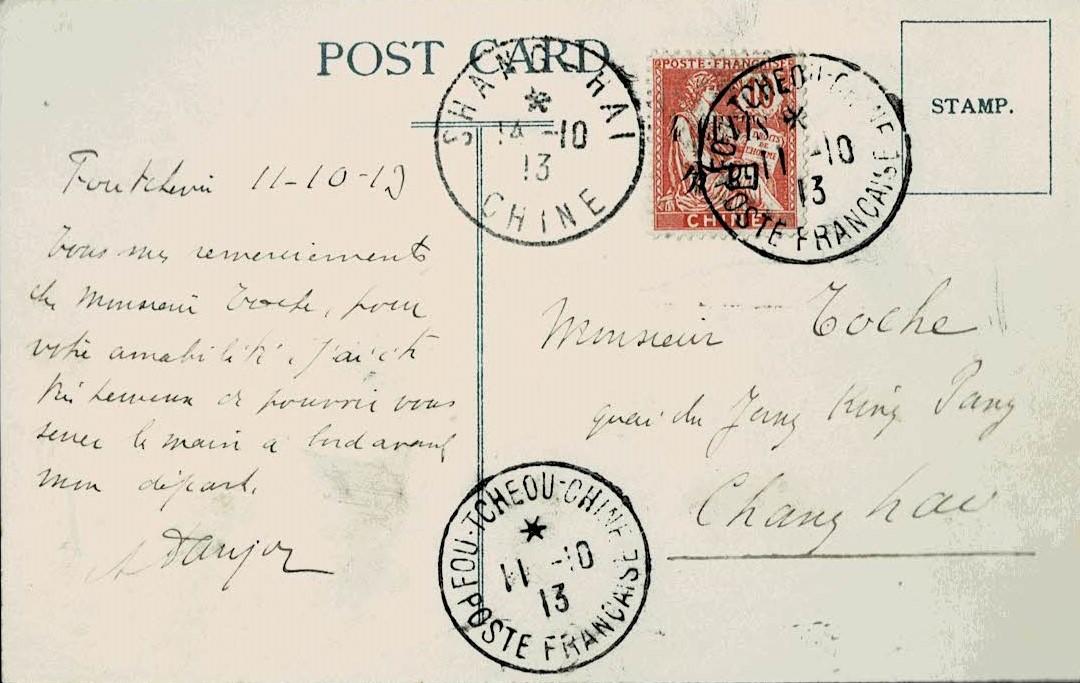 POST CARD
STAMP.
SHANG-HAI
14 -10
13
CHINE
POSTE FRANÇAISE
10
CHINE
FOU-TCHEOU-CHINE
11 -10
13
POSTE FRANÇAISE
11-10-13
Tous mes remerciements
cher Monsieur Toche, pour
votre amabilité. J'ai été
très heureux de pouvoir vous
serrer la main à bord avant
mon départ.
Monsieur Toche
quai du Yang King Pang
Chang hai
FOU-TCHEOU-CHINE
11 -10
13
POSTE FRANÇAISE